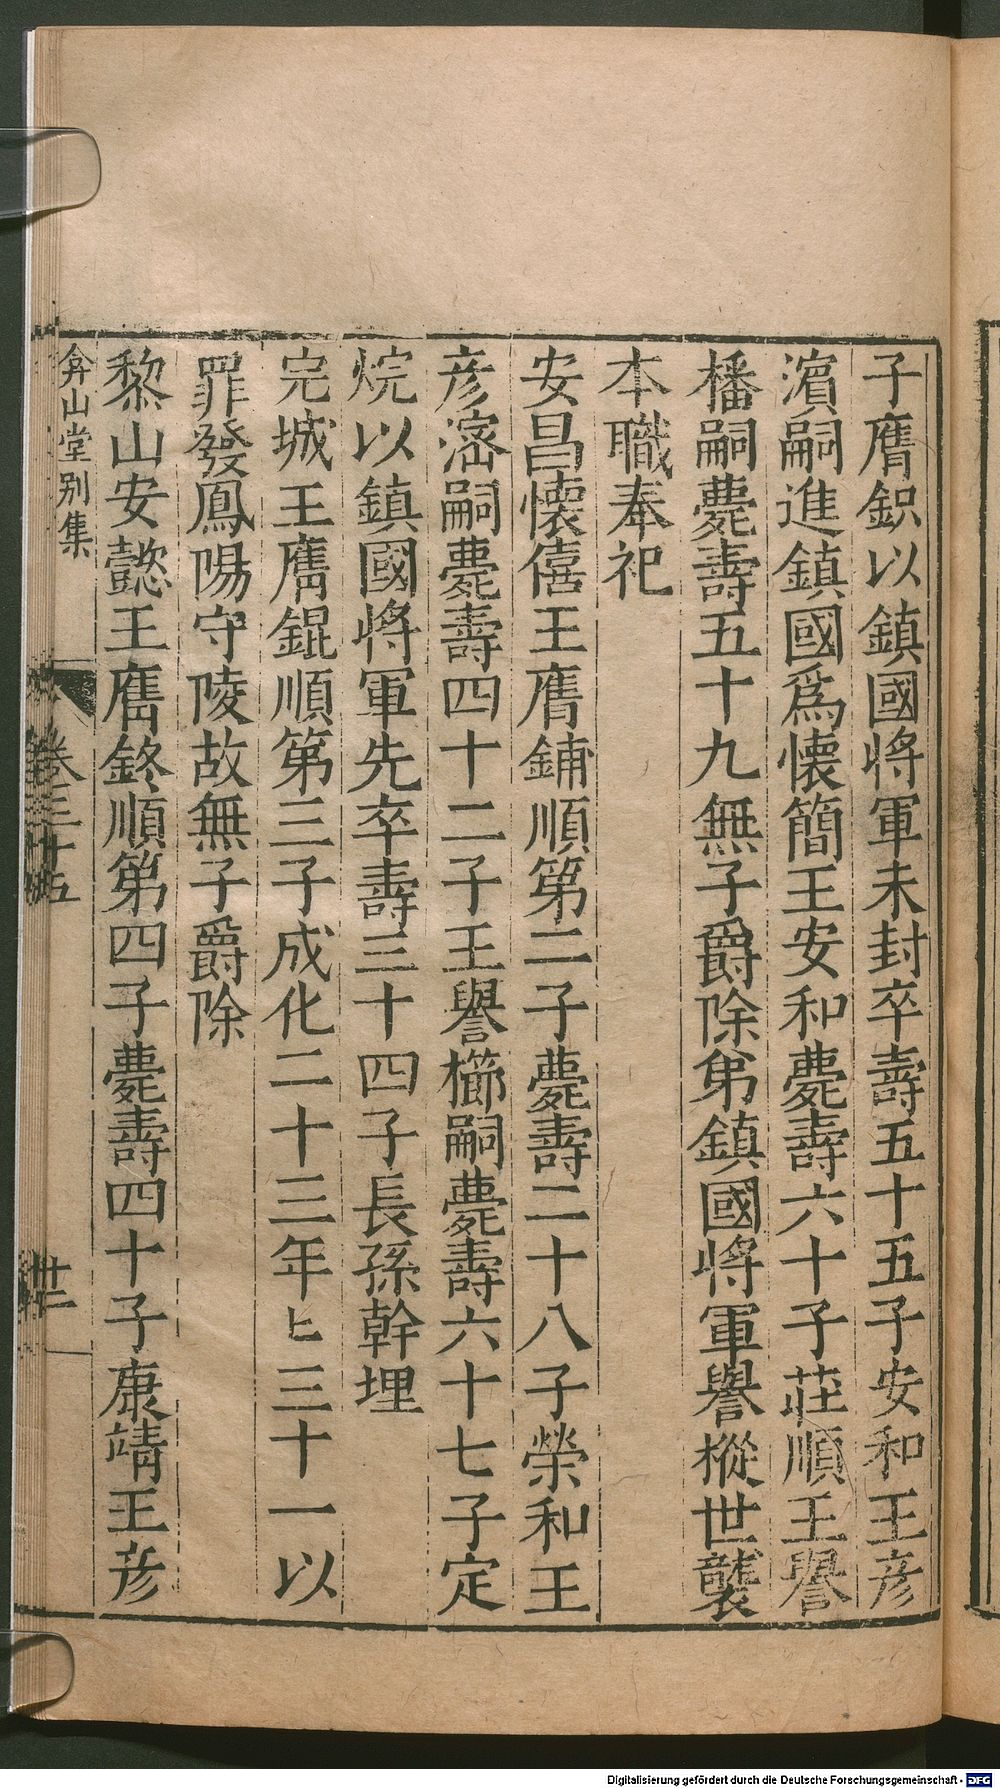 子膺鉙以鎮國將軍未封卒壽五十五子安和王彦
濵嗣進鎮國爲懐簡王安和薨壽六十子莊順王譽
橎嗣薨壽五十九無子爵除弟鎮國將軍譽樅世襲
本職奉祀
安昌懐僖王膺鋪順第二子薨壽二十八子榮和王
彦滵嗣薨壽四十二子王譽櫛嗣薨壽六十七子定
烷以鎮國將軍先卒壽三十四子長孫幹埋
完城王膺錕順第三子成化二十三年七三十一以
罪發鳳陽守陵故無子爵除
黎山安懿王膺鉖順第四子薨壽四十子康靖王彦
弇山堂别集
卷三十五
廿二
Digitalisierung gefördert durch die Deutsche Forschungsgemeinschaft - DFG